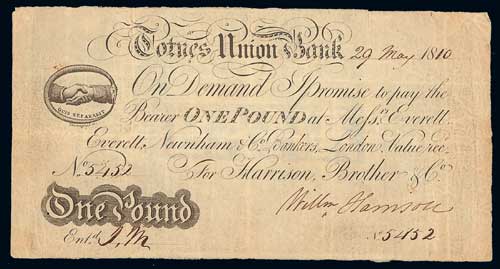 Totnes Union Bank 29 May 1810
On Demand I promise to pay the
Bearer ONE POUND at Messrs. Everett
Everett, Newnham & Co. Bankers, London, Value rec.
No. 5452 For Harrison, Brother & Co.
QUIS SEPARABIT
One Pound Willm. Harrison
Entd. J. M. No. 5452